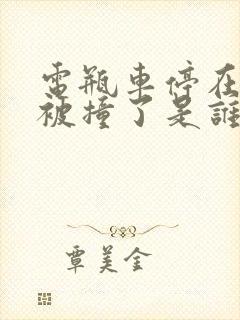 電瓶車停在
被撞了是誰
覃美金